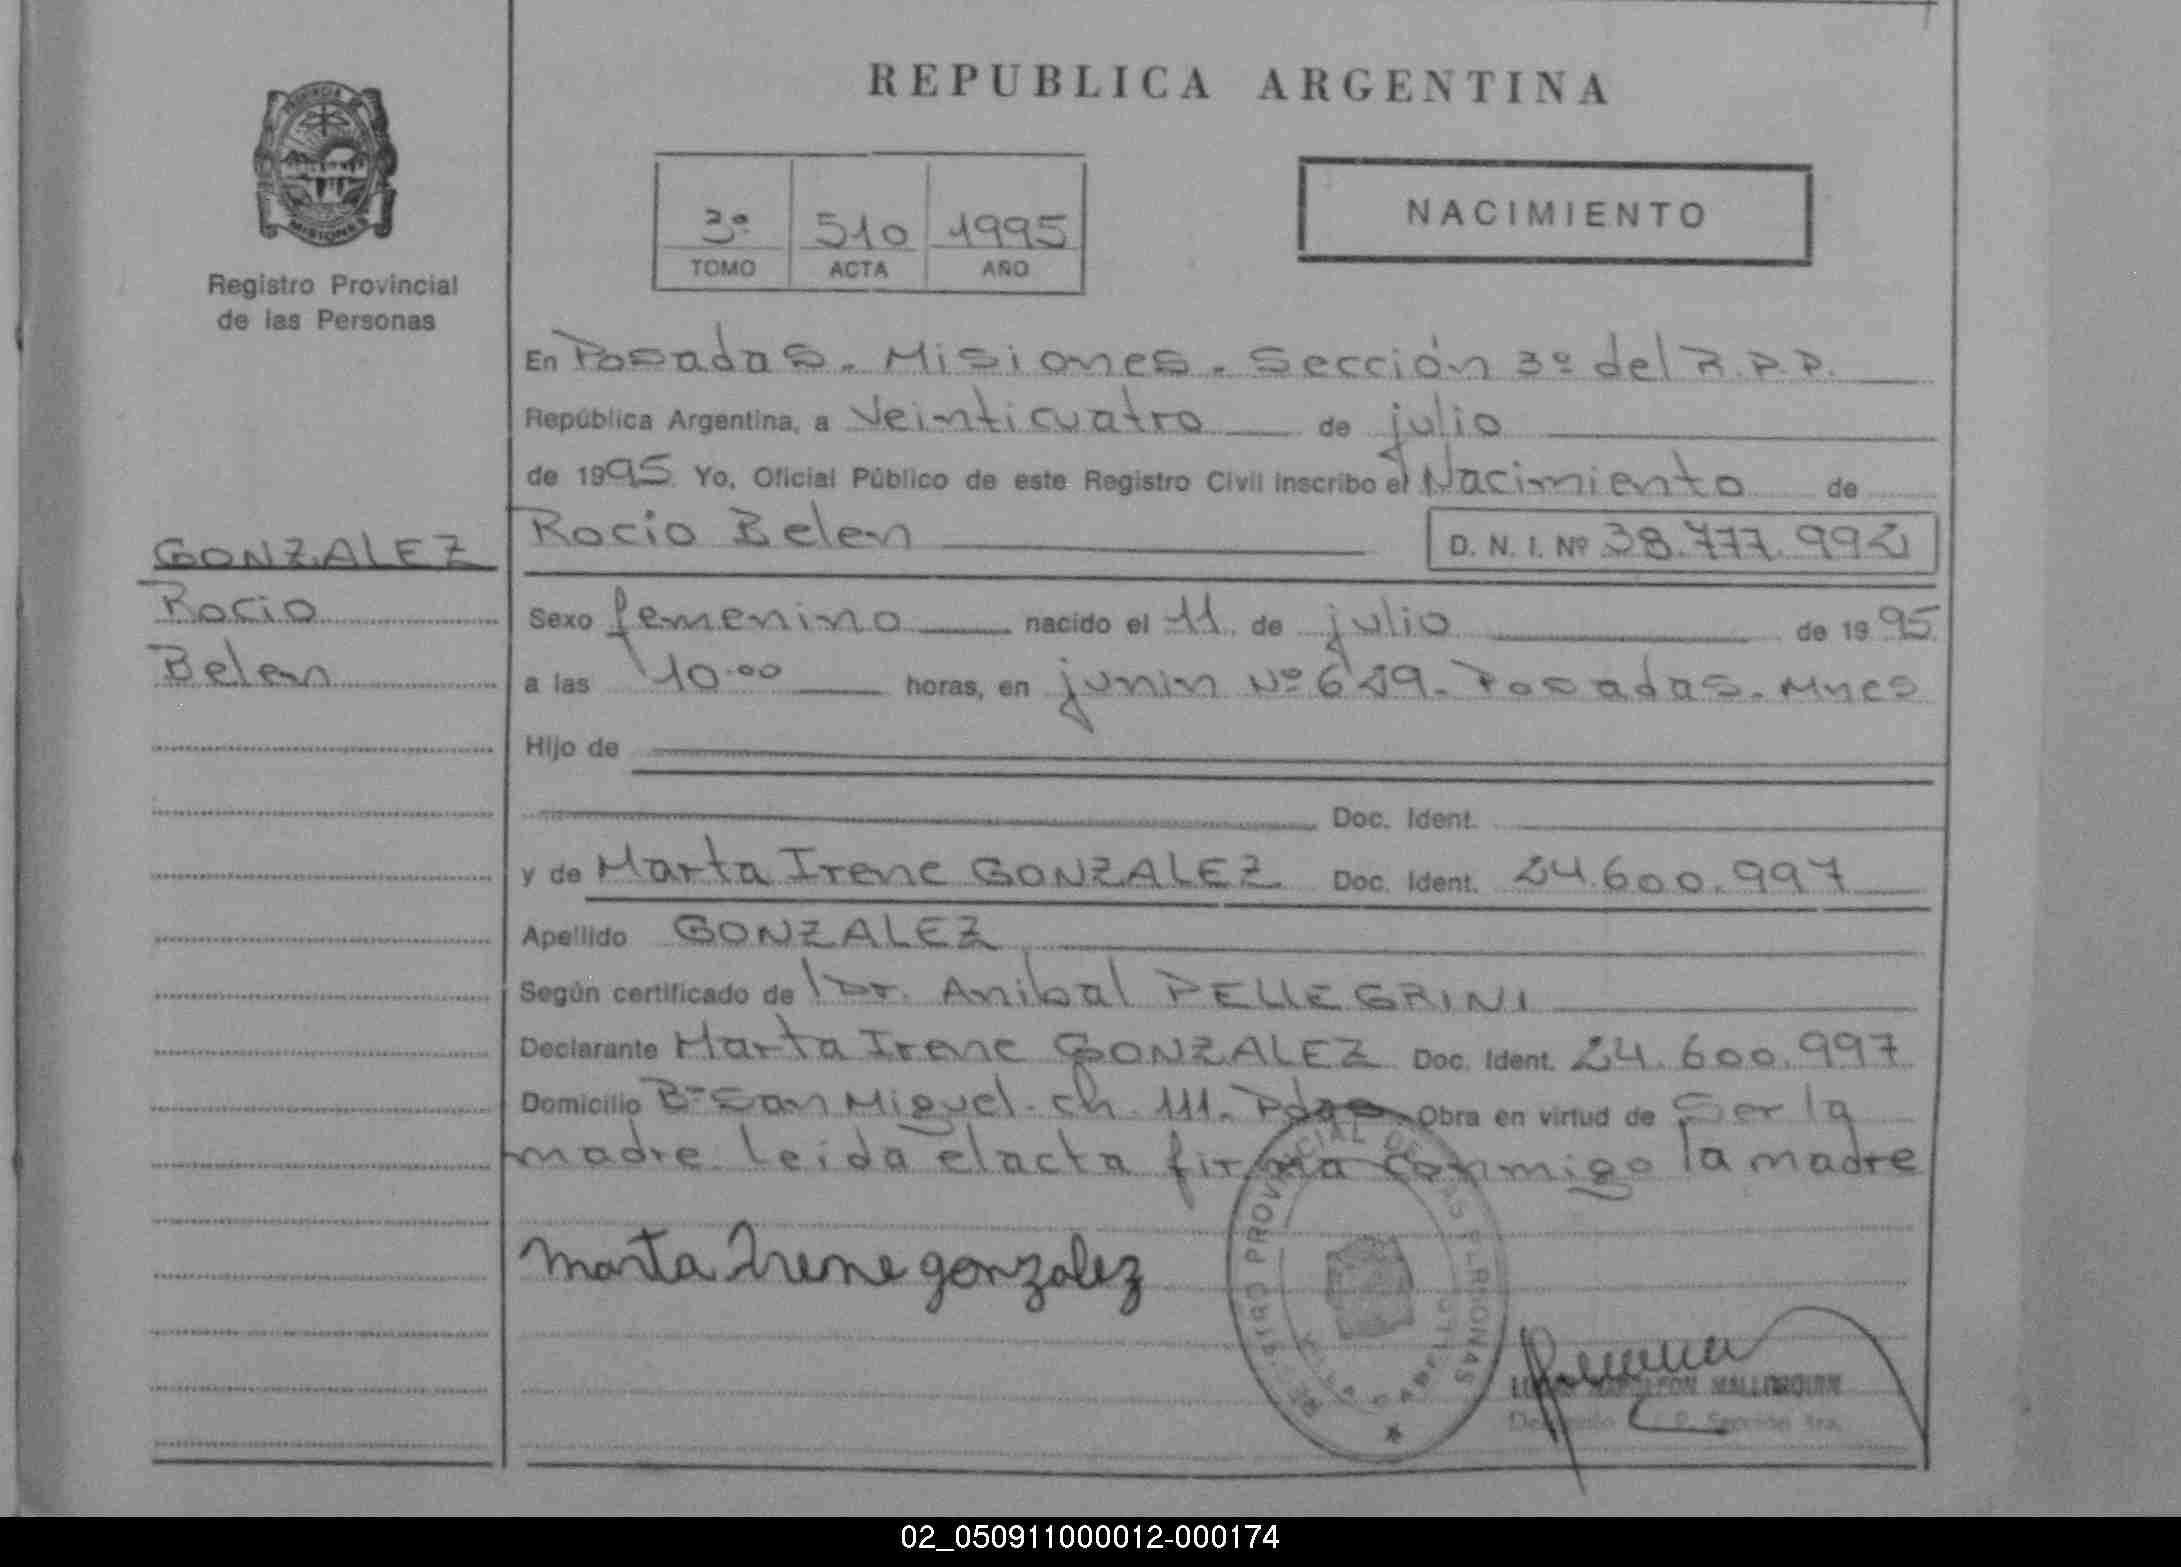 REPUBLICA ARGENTINA
PROVINCIA DE
MISIONES
Registro Provincial
de las Personas
3º 510 1995
TOMO ACTA AÑO
NACIMIENTO
En Posadas. Misiones. Sección 3º del R.P.P.
República Argentina, a Veinticuatro de julio
de 1995 Yo, Oficial Público de este Registro Civil inscribo el Nacimiento de
GONZALEZ
Rocio
Belen
Rocio Belen D. N. I. Nº 38.777.992
Sexo femenino nacido el 11 de julio de 1995
a las 10.00 horas, en junin Nº Posadas. Mnes
Hijo de
Doc. Ident.
y de Marta Irene GONZALEZ Doc. Ident. 24.600.997
Apellido GONZALEZ
Según certificado de Dr. Anibal PELLEGRINI
Declarante Marta Irene GONZALEZ Doc. Ident. 24.600.997
Domicilio Bº San Miguel. ch. 111. Pdas Obra en virtud de Ser la
madre. leida el acta firma conmigo la madre
marta Irene gonzalez
REGISTRO PROVINCIAL DE LAS PERSONAS
VILLA CABELLO
MALLORQUIN
Sección 3ra.
02_050911000012-000174